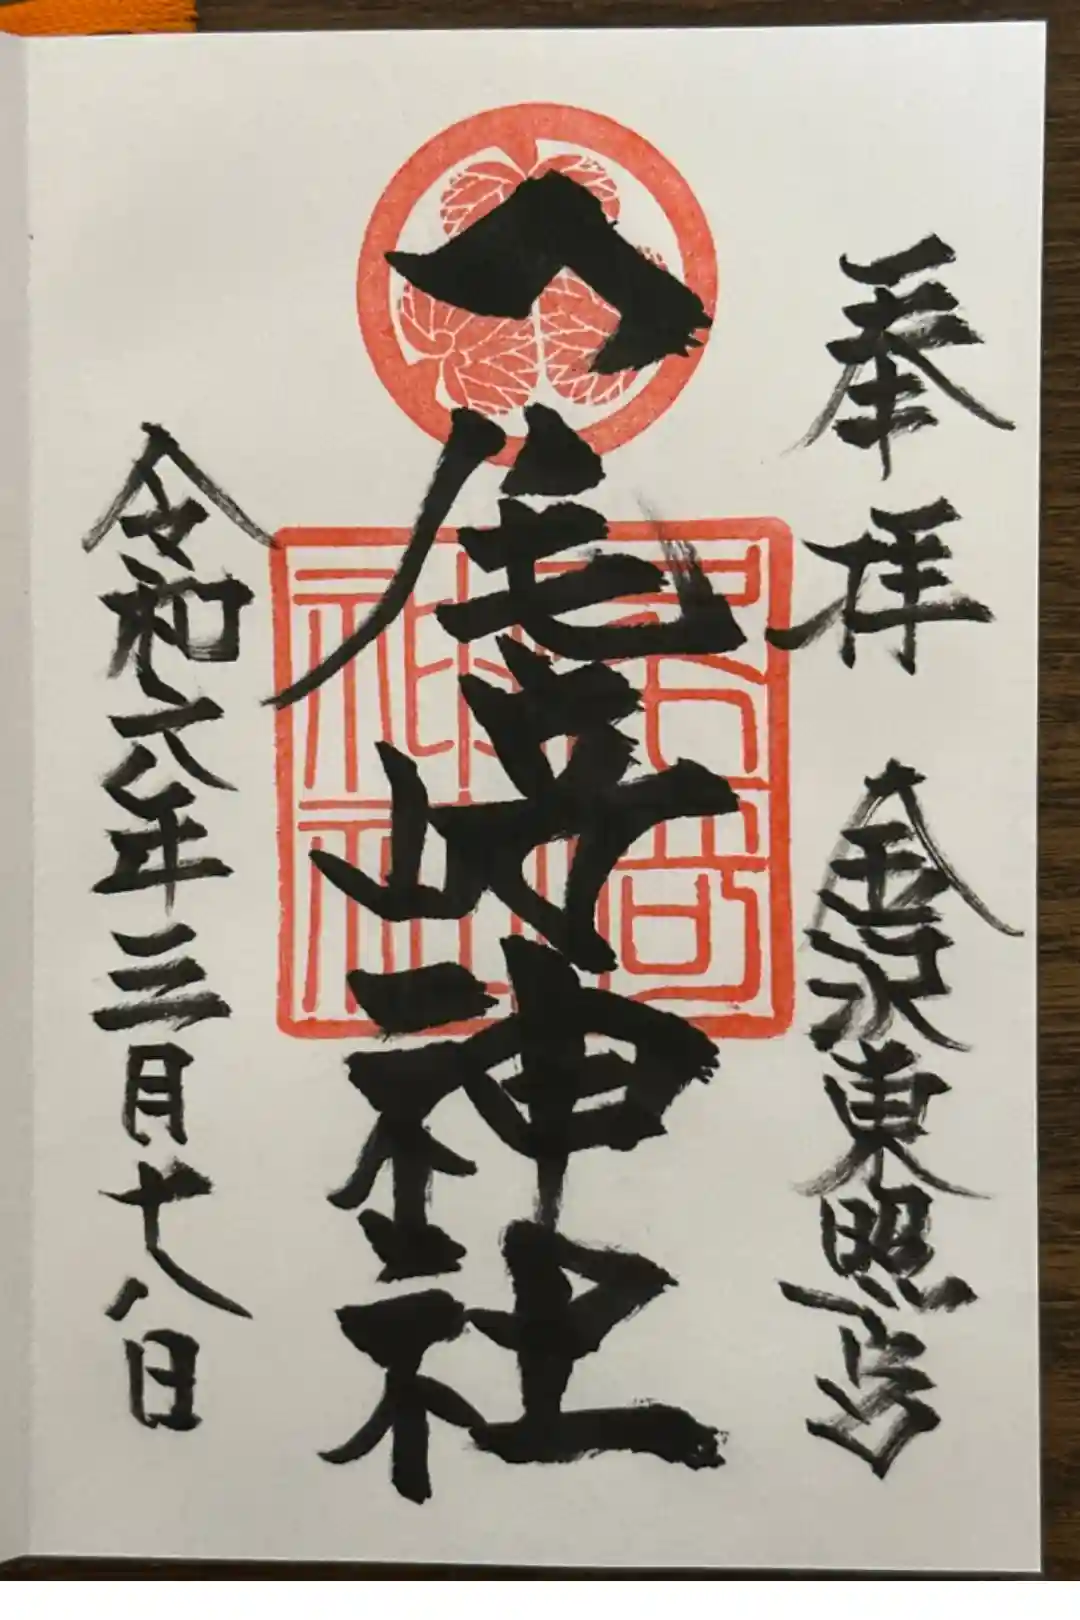 奉拝 金沢東照宮
尾崎神社
令和六年三月十八日